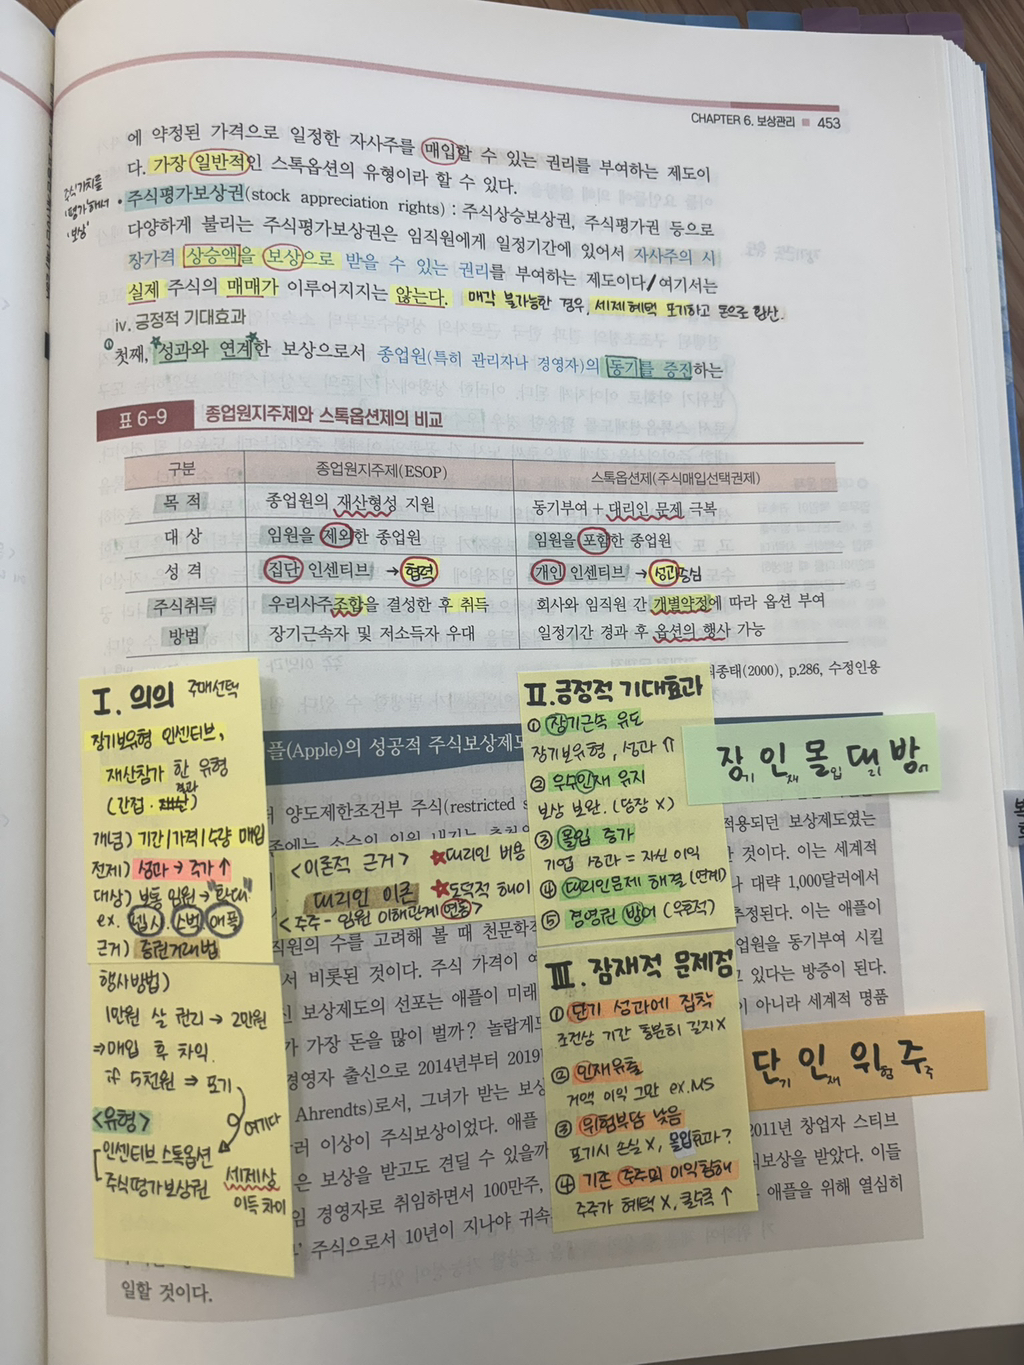 CHAPTER 6. 보상관리 ■ 453
에 약정된 가격으로 일정한 자사주를 매입할 수 있는 권리를 부여하는 제도이
다. 가장 일반적인 스톡옵션의 유형이라 할 수 있다.
주식가치를
'평가'해서
'보상'
• 주식평가보상권(stock appreciation rights) : 주식상승보상권, 주식평가권 등으로
다양하게 불리는 주식평가보상권은 임직원에게 일정기간에 있어서 자사주의 시
장가격 상승액을 보상으로 받을 수 있는 권리를 부여하는 제도이다/여기서는
실제 주식의 매매가 이루어지지는 않는다. 매각 불가능한 경우, 세제혜택 포기하고 돈으로 환산.
iv. 긍정적 기대효과
① 첫째, 성과와 연계한 보상으로서 종업원(특히 관리자나 경영자)의 동기를 증진하는
표 6-9 종업원지주제와 스톡옵션제의 비교
구분 종업원지주제(ESOP) 스톡옵션제(주식매입선택권제)
목 적 종업원의 재산형성 지원 동기부여 + 대리인 문제 극복
대 상 임원을 제외한 종업원 임원을 포함한 종업원
성 격 집단 인센티브 → 협력 개인 인센티브 → 성과중심
주식취득 우리사주조합을 결성한 후 취득 회사와 임직원 간 개별약정에 따라 옵션 부여
방법 장기근속자 및 저소득자 우대 일정기간 경과 후 옵션의 행사 가능
최종태(2000), p.286, 수정인용
I. 의의 주매선택
장기보유형 인센티브,
재산참가 한 유형
결과
(간접·재산)
개념) 기간/가격/수량 매입
전제) 성과 → 주가↑
대상) 보통 임원 → "확대"
ex. 펩시 스벅 애플
근거) 증권거래법
행사방법)
1만원 살 권리 → 2만원
⇒ 매입 후 차익.
if 5천원 ⇒ 포기
여기다
<유형>
인센티브 스톡옵션
주식평가보상권 세제상
이득 차이
<이론적 근거> ★대리인 비용
대리인 이론 ★도덕적 해이
<주주-임원 이해관계 연동>
II. 긍정적 기대효과
① 장기근속 유도
장기보유형, 성과⇑
② 우수인재 유지
보상 보완. (당장 X)
③ 몰입 증가
기업 성과 = 자신 이익
④ 대리인문제 해결 (연계)
⑤ 경영권 방어 (우호적)
장기 인재 몰입 대리 방어
III. 잠재적 문제점
① 단기 성과에 집착
조건상 기간 충분히 길지 X
② 인재유출
거액 이익 그만 ex. MS
③ 위험부담 낮음
포기시 손실 X, 몰입효과?
④ 기존 주주의 이익침해
주주가 혜택 X, 콜수록 ↑
단기 인재 위험 주주
플(Apple)의 성공적 주식보상제도
양도제한조건부 주식(restricted s
적용되던 보상제도였는
한 것이다. 이는 세계적
나 대략 1,000달러에서
직원의 수를 고려해 볼 때 천문학
추정된다. 이는 애플이
업원을 동기부여 시킬
서 비롯된 것이다. 주식 가격이
고 있다는 방증이 된다.
보상제도의 선포는 애플이 미래
이 아니라 세계적 명품
가 가장 돈을 많이 벌까? 놀랍게도
경영자 출신으로 2014년부터 2019
Ahrendts)로서, 그녀가 받는 보상
러 이상이 주식보상이었다. 애플
2011년 창업자 스티브
은 보상을 받고도 견딜 수 있을까
식보상을 받았다. 이들
임 경영자로 취임하면서 100만주,
애플을 위해 열심히
주식으로서 10년이 지나야 귀속
일할 것이다.